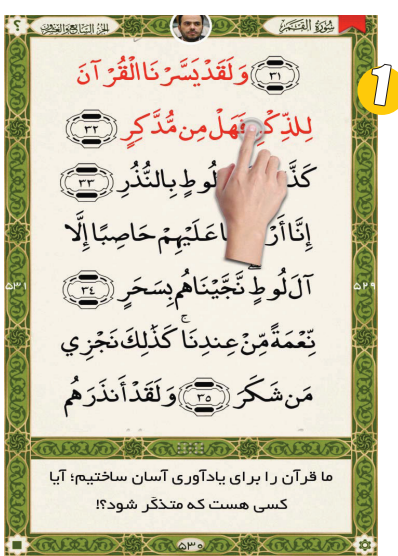 سُورَةُ القَمَر
الجزء السابع والعشرون
؟
1
٣١ وَلَقَدْ يَسَّرْنَا الْقُرْآنَ
لِلذِّكْرِ فَهَلْ مِن مُّدَّكِرٍ ٣٢
لُوطٍ بِالنُّذُرِ ٣٣
عَلَيْهِمْ حَاصِبًا إِلَّا
آلَ لُوطٍ نَّجَّيْنَاهُم بِسَحَرٍ ٣٤
نِّعْمَةً مِّنْ عِندِنَا ۚ كَذَٰلِكَ نَجْزِي
مَن شَكَرَ ٣٥ وَلَقَدْ أَنذَرَهُم
۵۳۱
۵۲۹
ما قرآن را برای یادآوری آسان ساختیم؛ آیا
کسی هست که متذکّر شود؟!
۵۳۰